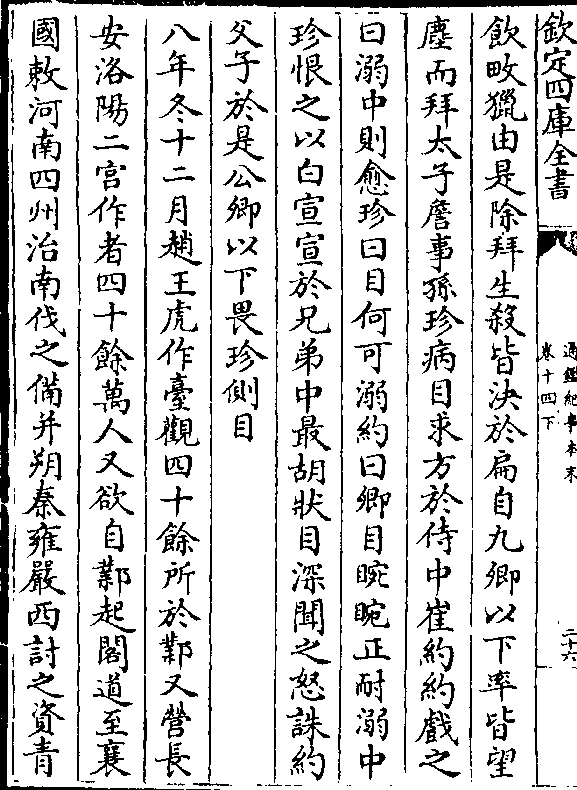 欽定四庫全書
通鑑紀事本末
卷十四下
二十六
飲畋獵由是除拜生殺皆決於扁自九卿以下率皆望
塵而拜太子詹事孫珍病目求方於侍中崔約約戲之
曰溺中則愈珍曰目何可溺約曰卿目睕睕正耐溺中
珍恨之以白宣宣於兄弟中最胡狀目深聞之怒誅約
父子於是公卿以下畏珍側目
八年冬十二月趙王虎作臺觀四十餘所於鄴又營長
安洛陽二宮作者四十餘萬人又欲自鄴起閣道至襄
國敕河南四州治南伐之備并朔秦雍嚴西討之資青